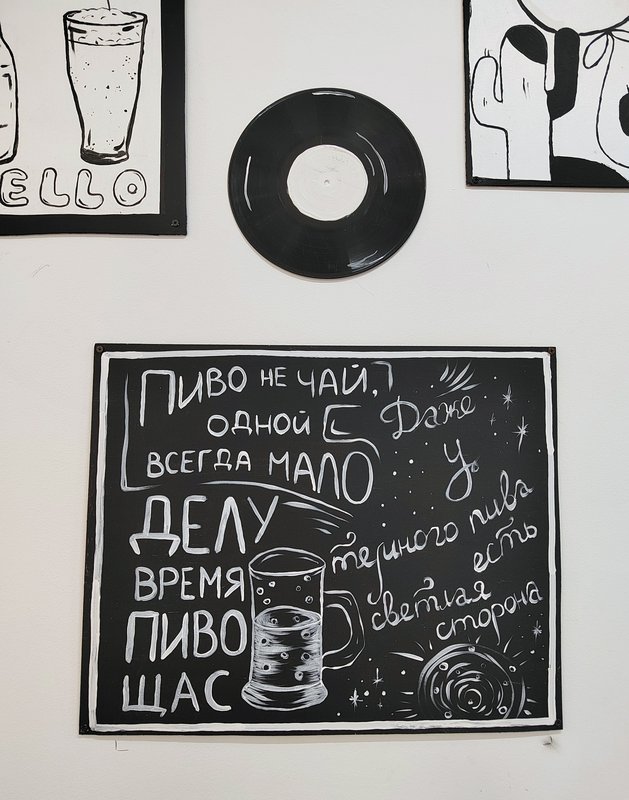 ELLO
ПИВО НЕ ЧАЙ,
ОДНОЙ
ВСЕГДА МАЛО
ДЕЛУ
ВРЕМЯ
ПИВО
ЩАС
Даже
у
темного пива
есть
светлая
сторона